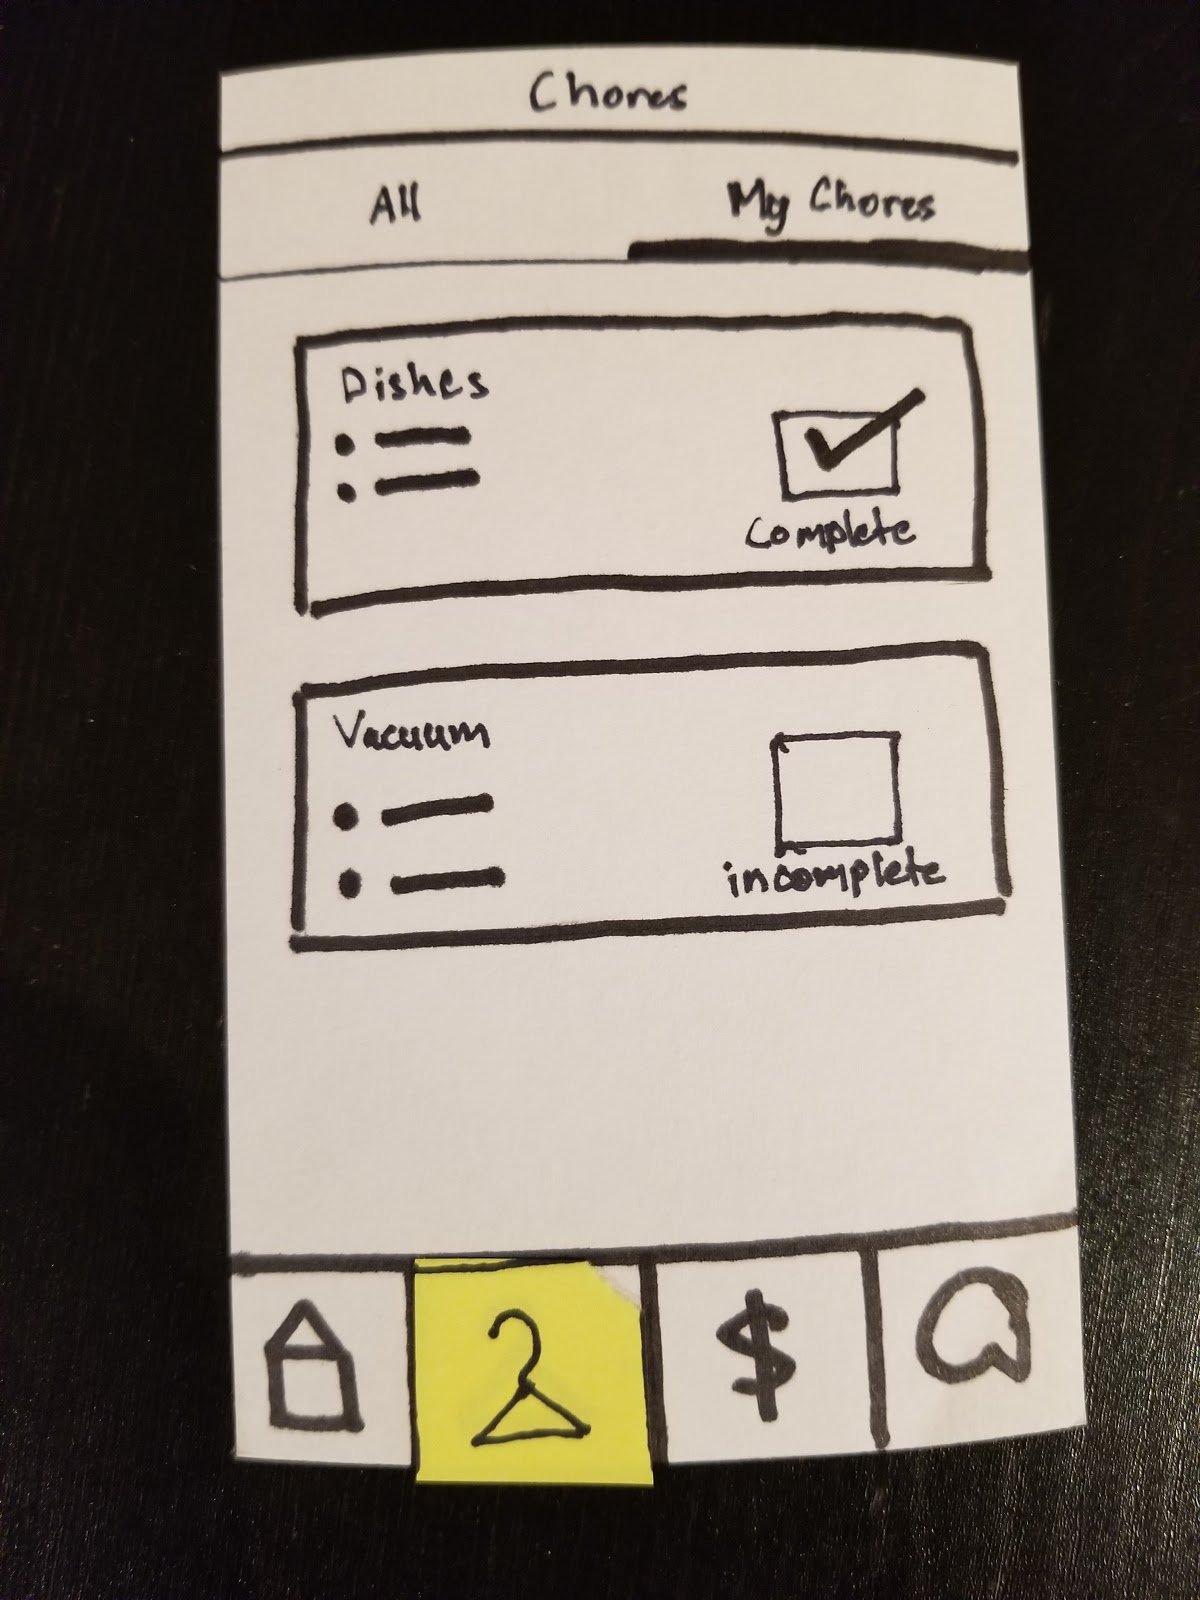 Chores
All
My Chores
Dishes
Complete
Vacuum
incomplete
$